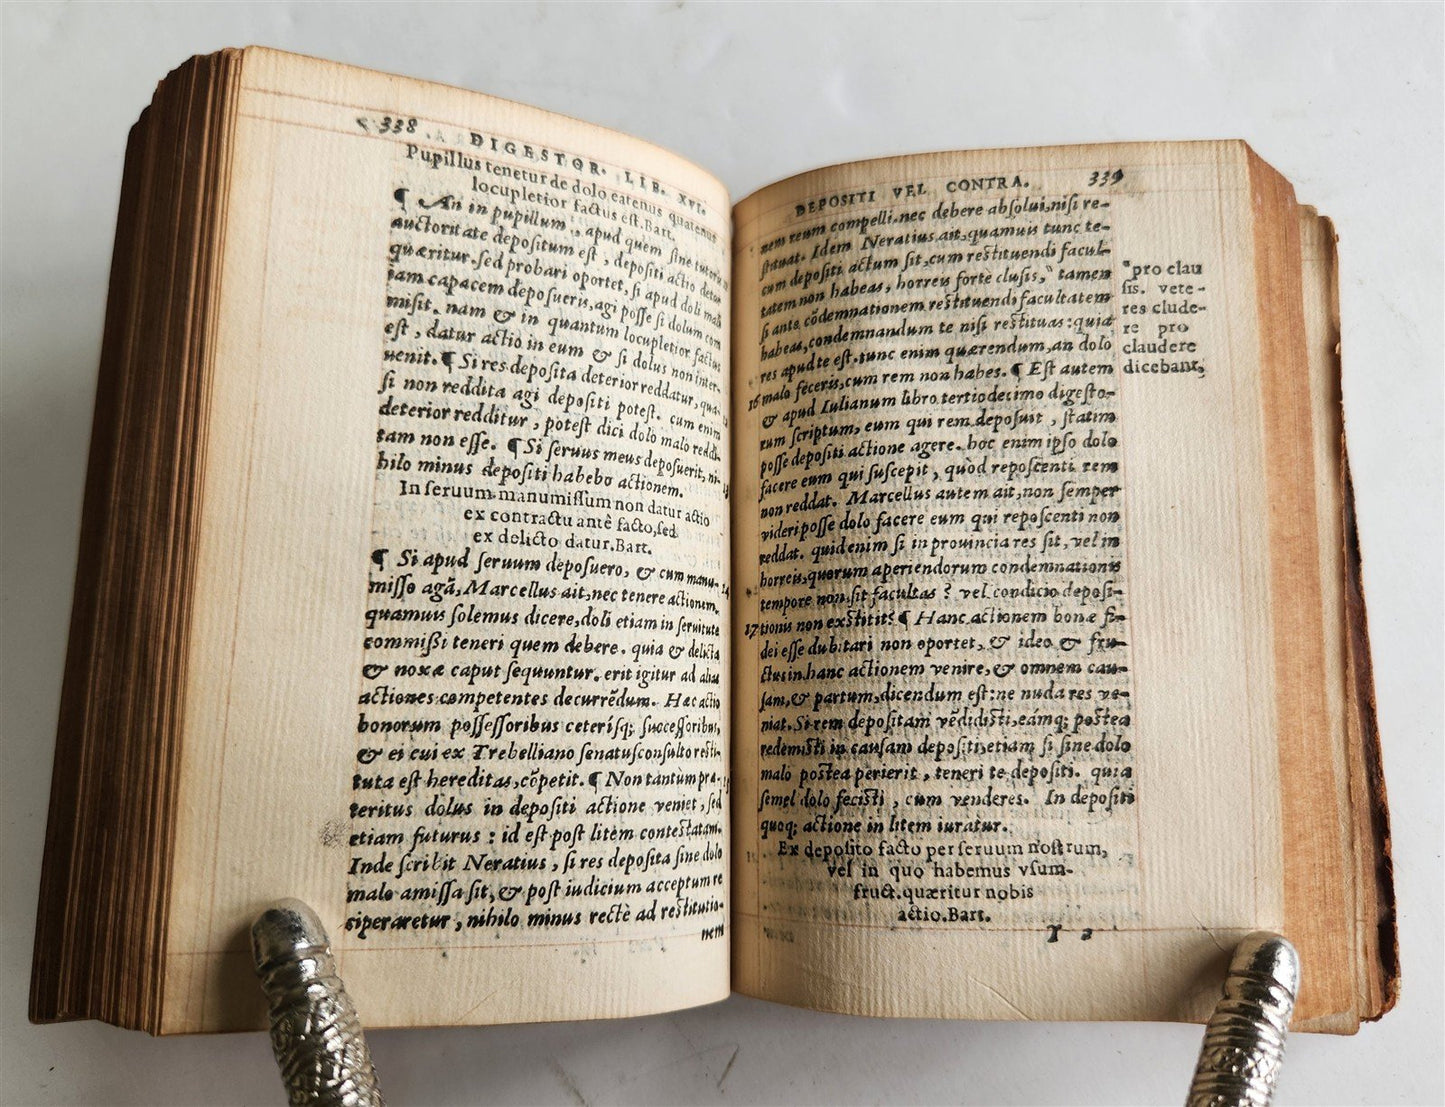 338
DIGESTOR. LIB. XVI.
Pupillus tenetur de dolo eatenus quatenus
locupletior factus est. Bart.
¶ An in pupillum, apud quem sine tutoris
auctoritate depositum est, depositi actio detur
quæritur. sed probari oportet, si apud doli mali
iam capacem deposueris, agi posse si dolum com
misit. nam & in quantum locupletior factus
est, datur actio in eum & si dolus non inter-
uenit. ¶ Si res deposita deterior reddatur, qua-
si non reddita agi depositi potest. cum enim
deterior redditur, potest dici dolo malo reddi-
tam non esse. ¶ Si seruus meus deposuerit, ni-
hilo minus depositi habebo actionem.
In seruum manumissum non datur actio
ex contractu antè facto, sed
ex delicto datur. Bart.
¶ Si apud seruum deposuero, & cum manu-
misso agã, Marcellus ait, nec tenere actionem.
quamuis solemus dicere, doli etiam in seruitute
commissi teneri quem debere. quia & delicta
& noxæ caput sequuntur. erit igitur ad alias
actiones competentes decurrẽdum. Hæc actio
bonorum possessoribus ceterísq; successoribus,
& ei cui ex Trebelliano senatusconsulto resti-
tuta est hereditas, cõpetit. ¶ Non tantum præ-
teritus dolus in depositi actione veniet, sed
etiam futurus: id est post litem contestatam.
Inde scribit Neratius, si res deposita sine dolo
malo amissa sit, & post iudicium acceptum re
ciperaretur, nihilo minus rectè ad restitutio-
nem
DEPOSITI VEL CONTRA.
339
nem reum compelli. nec debere absolui, nisi re-
stituat. Idem Neratius ait, quamuis tunc te-
cum depositi actum sit, cum restituendi facul-
tatem non habeas, horreis fortè clusis, " tamen
si ante cõdemnationem restituendi facultatem
habeas, condemnandum te nisi restituas: quia
res apud te est. tunc enim quærendum, an dolo
malo feceris, cum rem non habes. ¶ Est autem
16
& apud Iulianum libro tertiodecimo digesto-
rum scriptum, eum qui rem deposuit, statim
posse depositi actione agere. hoc enim ipso dolo
facere eum qui suscepit, quòd reposcenti rem
non reddat. Marcellus autem ait, non semper
videri posse dolo facere eum qui reposcenti non
reddat. quid enim si in prouincia res sit, vel in
horreis, quorum aperiendorum condemnationis
tempore non sit facultas? vel condicio deposi-
tionis non exstitit? ¶ Hanc actionem bonæ fi-
17
dei esse dubitari non oportet, & ideo & fru-
ctus in hanc actionem venire, & omnem cau-
sam, & partum, dicendum est: ne nuda res ve-
niat. Si rem depositam vẽdidisti, eámq; postea
redemisti in causam depositi, etiam si sine dolo
malo postea perierit, teneri te depositi. quia
semel dolo fecisti, cum venderes. In depositi
quoq; actione in litem iuratur.
Ex deposito facto per seruum nostrum,
vel in quo habemus vsum-
fruct. quæritur nobis
actio. Bart.
Y 2
"pro clau
sis. vete-
res clude-
re pro
claudere
dicebant,